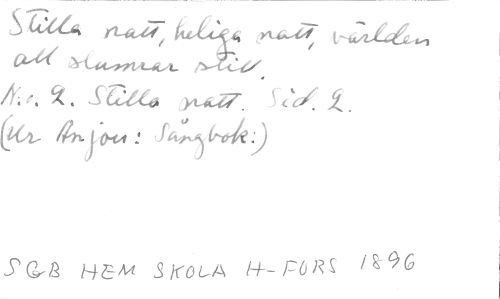 Stilla natt, heliga natt, världen
all slumrar still.
N:o 2. Stilla natt. Sid. 2.
(Ur Anjou: Sångbok:)
SGB HEM SKOLA H-FORS 1896